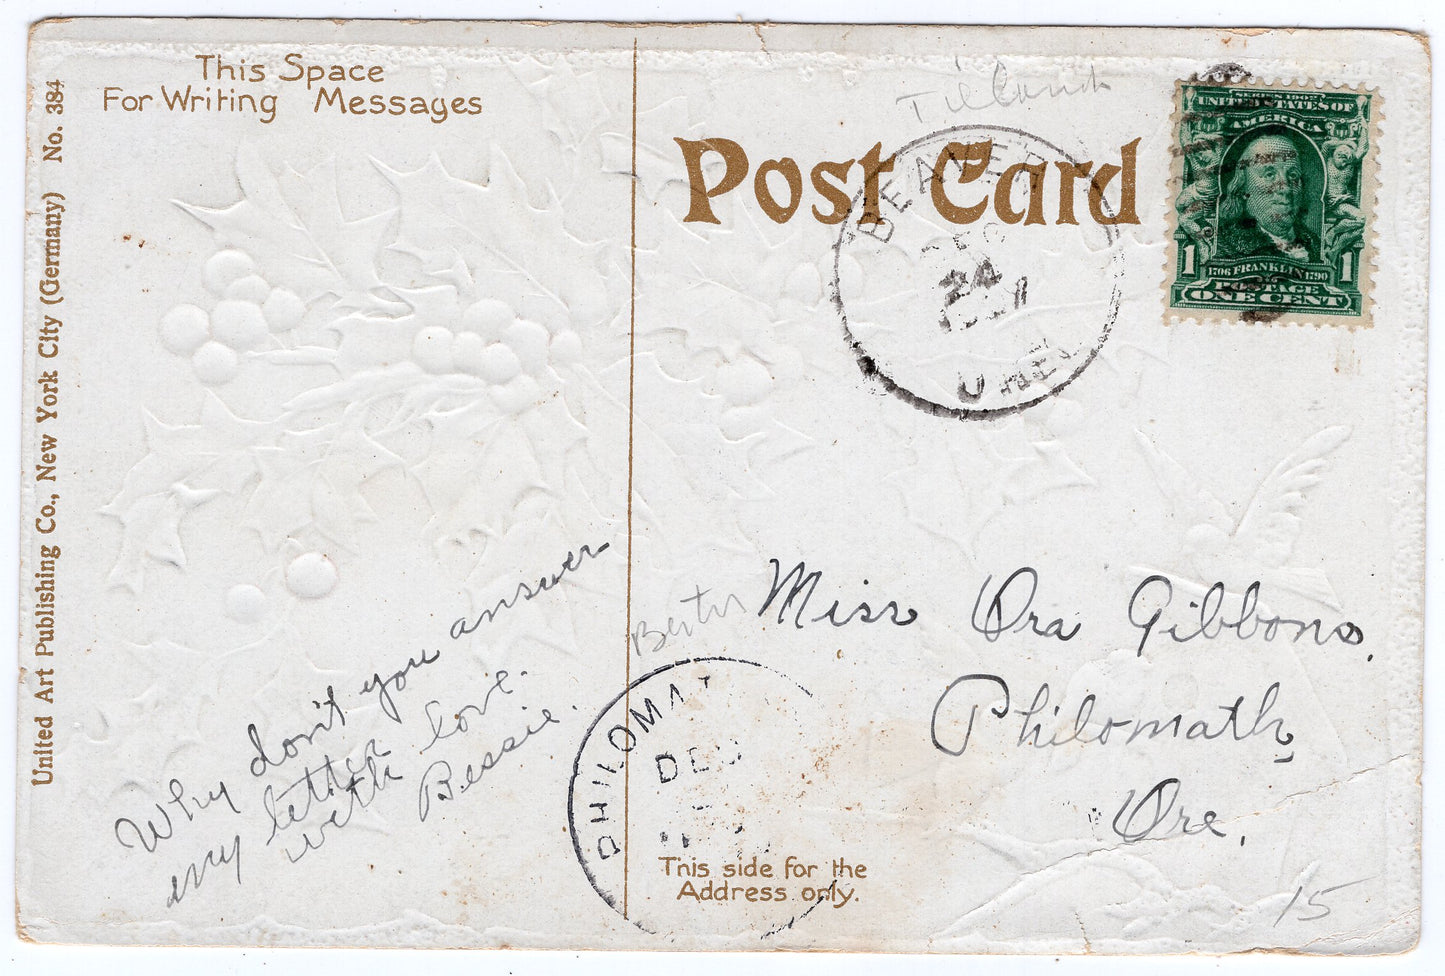 This Space
For Writing Messages
United Art Publishing Co., New York City (Germany) No. 384
Why don't you answer
my letter
with love.
Bessie.
Post Card
BEAVER
DEC
24
ORE.
SERIES 1902
UNITED STATES OF
AMERICA
1 1
1706 FRANKLIN 1790
POSTAGE
ONE CENT
Miss Ora Gibbons.
Philomath,
Ore.
PHILOMAT
DEC
This side for the
Address only.
15